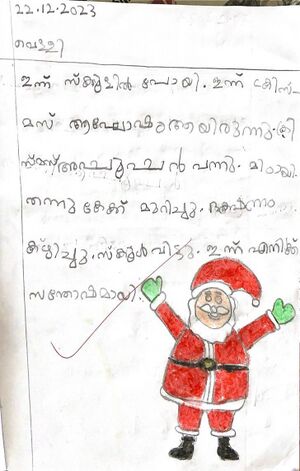 22.12.2023
വെള്ളി
ഇന്ന് സ്കൂളിൽ പോയി. ഇന്ന് ക്രിസ്
മസ് ആഘോഷംആയിരുന്നു. ക്രി
സ്മസ് അപ്പൂപ്പൻ വന്നു. മിഠായി
തന്നു കേക്ക് മുറിച്ചു. ഭക്ഷണം
കഴിച്ചു. സ്കൂൾ വിട്ടു. ഇന്ന് എനിക്ക്
സന്തോഷമായി.